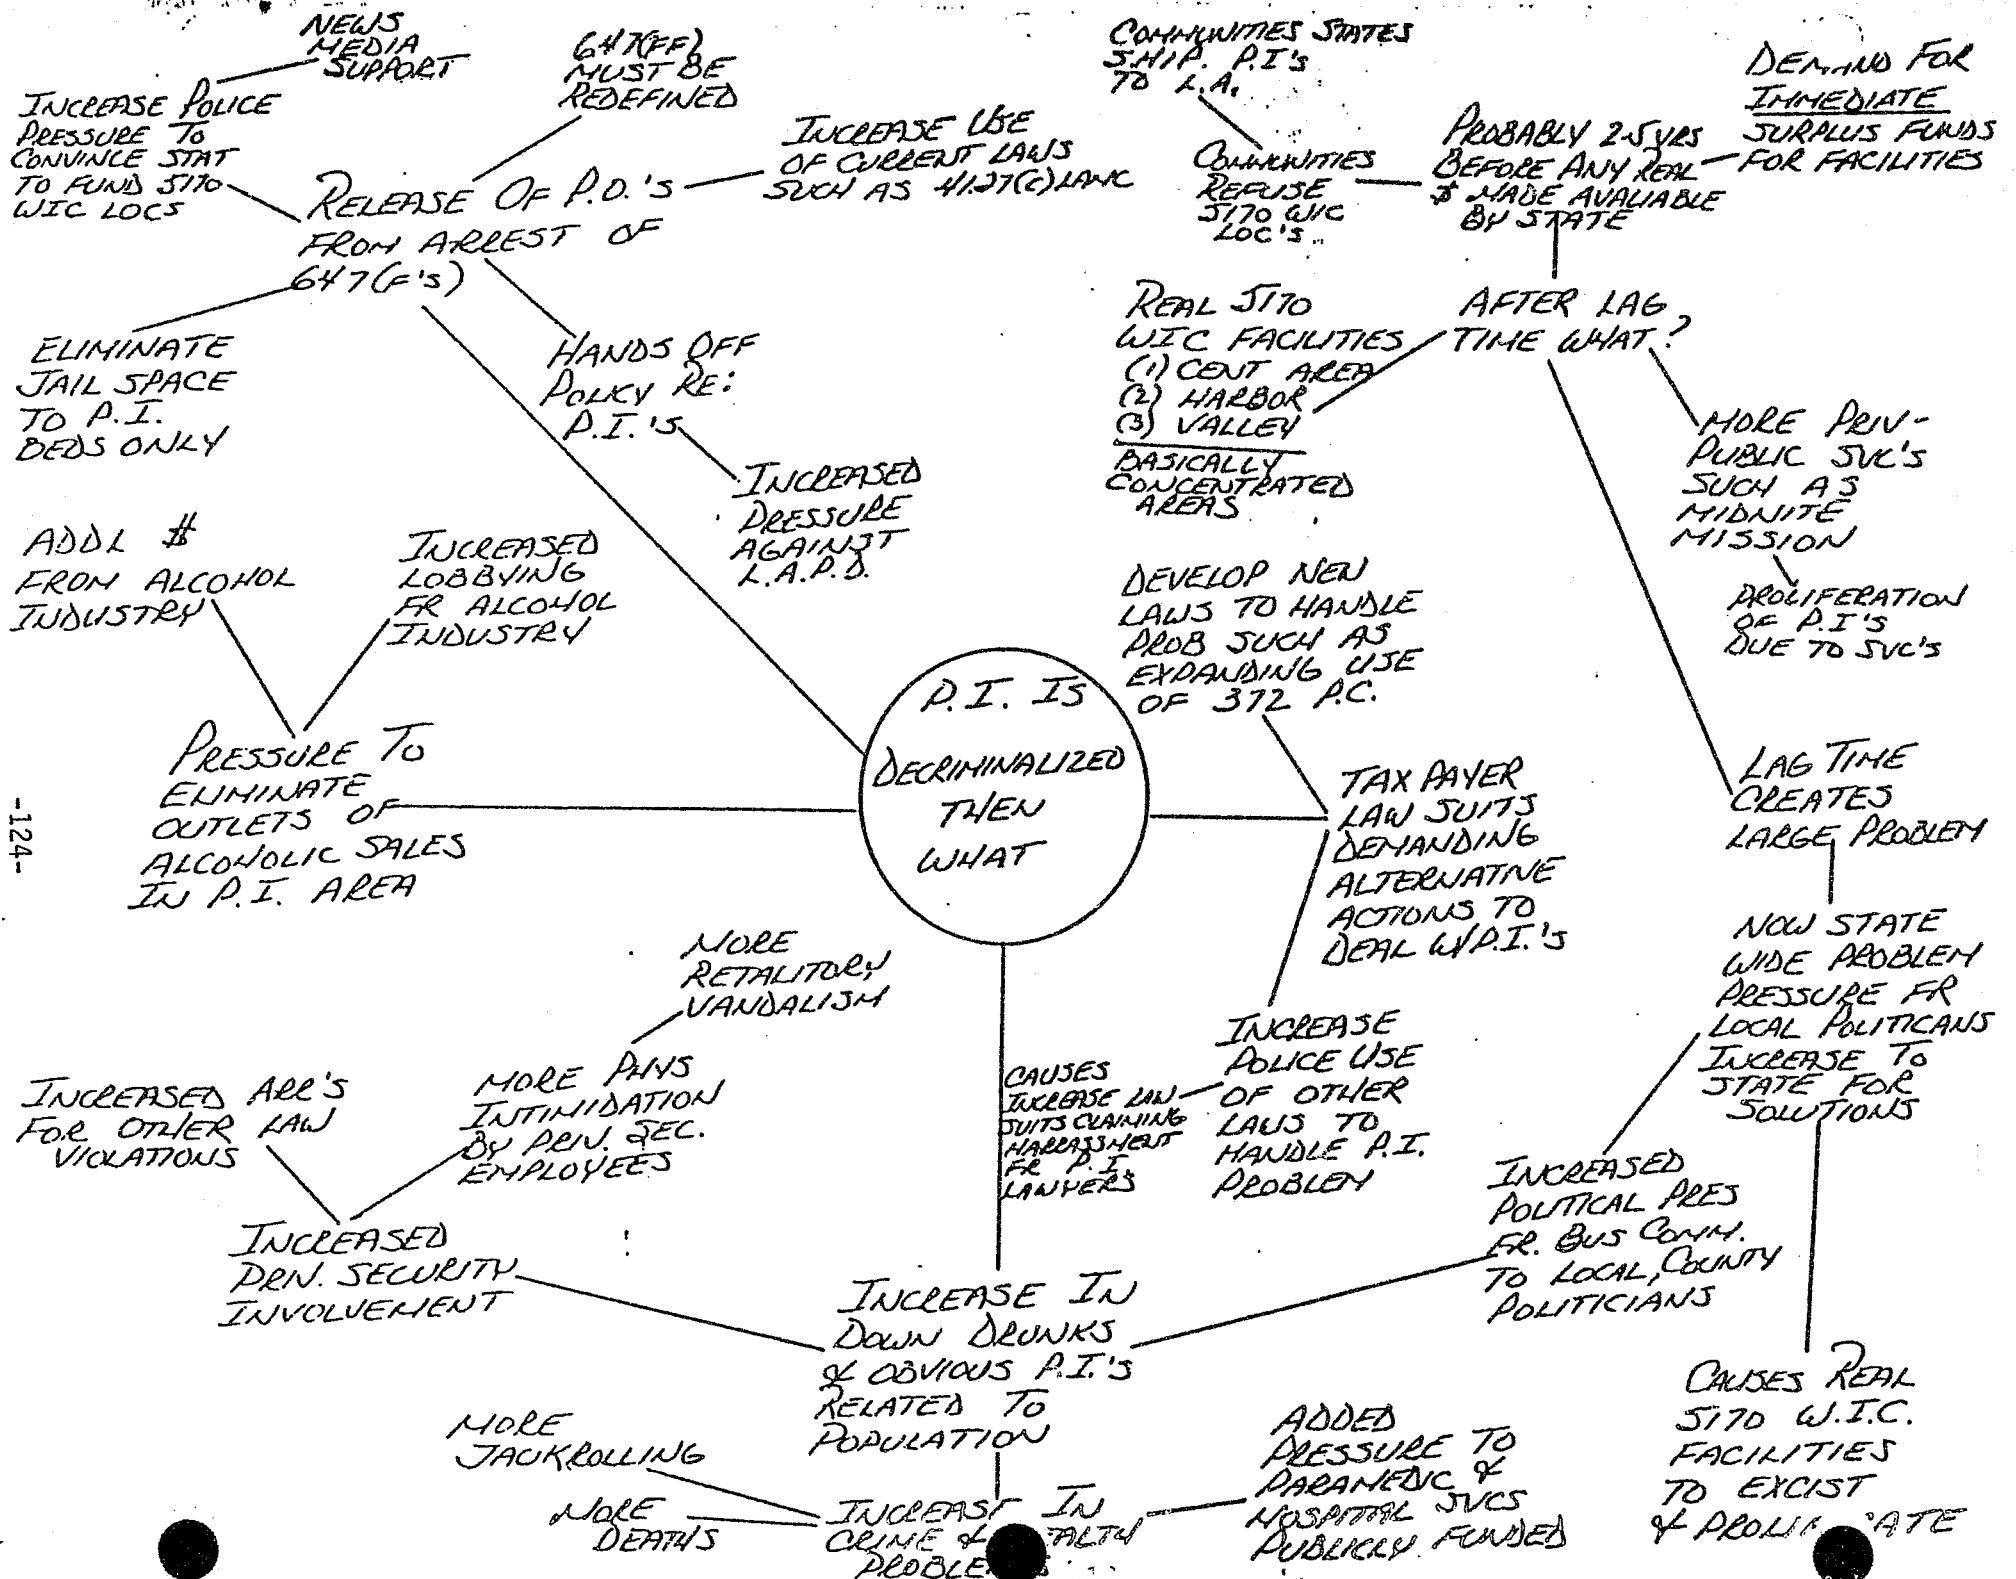 NEWS
MEDIA
SUPPORT
INCREASE POLICE
PRESSURE TO
CONVINCE STAT
TO FUND 5170
WIC LOCS
647(FF)
MUST BE
REDEFINED
RELEASE OF P.D.'S
FROM ARREST OF
647(F'S)
INCREASE USE
OF CURRENT LAWS
SUCH AS 41.27(C) LAMC
COMMUNITIES STATES
SHIP. P.I'S
TO L.A.
COMMUNITIES
REFUSE
5170 WIC
LOC'S
PROBABLY 2-5 YRS
BEFORE ANY REAL
$ MADE AVALIABLE
BY STATE
DEMAND FOR
IMMEDIATE
SURPLUS FUNDS
FOR FACILITIES
ELIMINATE
JAIL SPACE
TO P.I.
BEDS ONLY
HANDS OFF
POLICY RE:
P.I.'S
INCREASED
PRESSURE
AGAINST
L.A.P.D.
REAL 5170
WIC FACILITIES
(1) CENT AREA
(2) HARBOR
(3) VALLEY
BASICALLY
CONCENTRATED
AREAS
AFTER LAG
TIME WHAT?
MORE PRIV-
PUBLIC SVC'S
SUCH AS
MIDNITE
MISSION
PROLIFERATION
OF P.I'S
DUE TO SVC'S
ADDL $
FROM ALCOHOL
INDUSTRY
INCREASED
LOBBYING
FR ALCOHOL
INDUSTRY
PRESSURE TO
ELIMINATE
OUTLETS OF
ALCOHOLIC SALES
IN P.I. AREA
P.I. IS
DECRIMINALIZED
THEN
WHAT
DEVELOP NEW
LAWS TO HANDLE
PROB SUCH AS
EXPANDING USE
OF 372 P.C.
TAX PAYER
LAW SUITS
DEMANDING
ALTERNATIVE
ACTIONS TO
DEAL W/P.I.'S
LAG TIME
CREATES
LARGE PROBLEM
NOW STATE
WIDE PROBLEM
PRESSURE FR
LOCAL POLITICANS
INCREASE TO
STATE FOR
SOLUTIONS
-124-
MORE
RETALITORY
VANDALISM
MORE PHYS
INTIMIDATION
BY PRIV. SEC.
EMPLOYEES
INCREASED ARR'S
FOR OTHER LAW
VIOLATIONS
INCREASED
PRIV. SECURITY
INVOLVEMENT
CAUSES
INCREASE LAW
SUITS CLAIMING
HARRASSMENT
FR P.I.
LAWYERS
INCREASE
POLICE USE
OF OTHER
LAWS TO
HANDLE P.I.
PROBLEM
INCREASED
POLITICAL PRES
FR. BUS COMM.
TO LOCAL, COUNTY
POLITICIANS
INCREASE IN
DOWN DRUNKS
& OBVIOUS P.I.'S
RELATED TO
POPULATION
CAUSES REAL
5170 W.I.C.
FACILITIES
TO EXCIST
&
MORE
JACKROLLING
MORE
DEATHS
INCREASE IN
CRIME &
ADDED
PRESSURE TO
PARAMEDIC &
HOSPITAL SVCS
PUBLICLY FUNDED